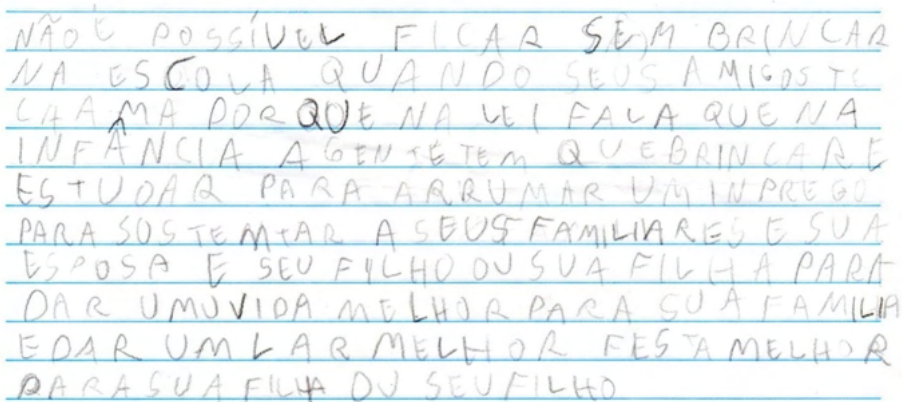 NÃO É POSSÍVEL FICAR SEM BRINCAR
NA ESCOLA QUANDO SEUS AMIGOS TE
CHAMA PORQUE NA LEI FALA QUE NA
INFÂNCIA AGENTE TEM QUE BRINCAR E
ESTUDAR PARA ARRUMAR UM INPREGO
PARA SUSTEMTAR A SEUS FAMILIARES E SUA
ESPOSA E SEU FILHO OU SUA FILHA PARA
DAR UMUVIDA MELHOR PARA SUA FAMILIA
E DAR UM LAR MELHOR FESTA MELHOR
PARA SUA FILHA OU SEU FILHO